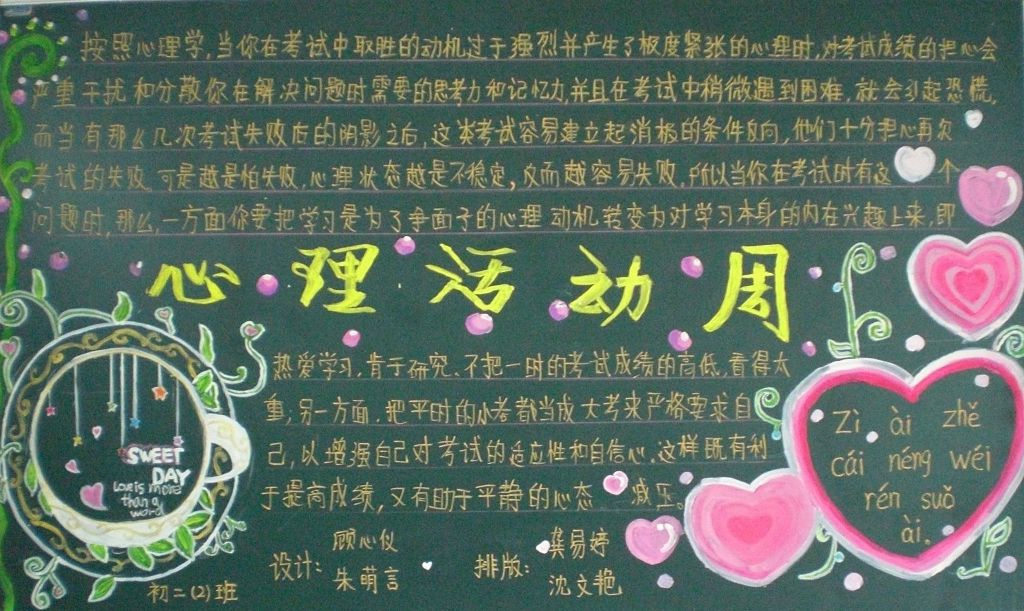 按照心理学，当你在考试中取胜的动机过于强烈并产生了极度紧张的心理时，对考试成绩的担心会
严重干扰和分散你在解决问题时需要的思考力和记忆力，并且在考试中稍微遇到困难，就会引起恐慌，
而当有那么几次考试失败后的阴影之后，这类考试容易建立起消极的条件反向，他们十分担心再次
考试的失败，可是越是怕失败，心理状态越是不稳定，反而越容易失败。所以当你在考试时有这个
问题时，那么，一方面你要把学习是为了争面子的心理动机转变为对学习本身的内在兴趣上来，即
心理活动周
热爱学习，肯于研究、不把一时的考试成绩的高低，看得太
重；另一方面，把平时的小考都当成大考来严格要求自
己，以增强自己对考试的适应性和自信心。这样既有利
于提高成绩，又有助于平静的心态 减压。
SWEET
DAY
Love is more
than a
word
Zì ài zhě
cái néng wéi
rén suǒ
ài.
设计：顾心仪
朱萌言
排版：龚易婷
沈文艳
初二(2)班